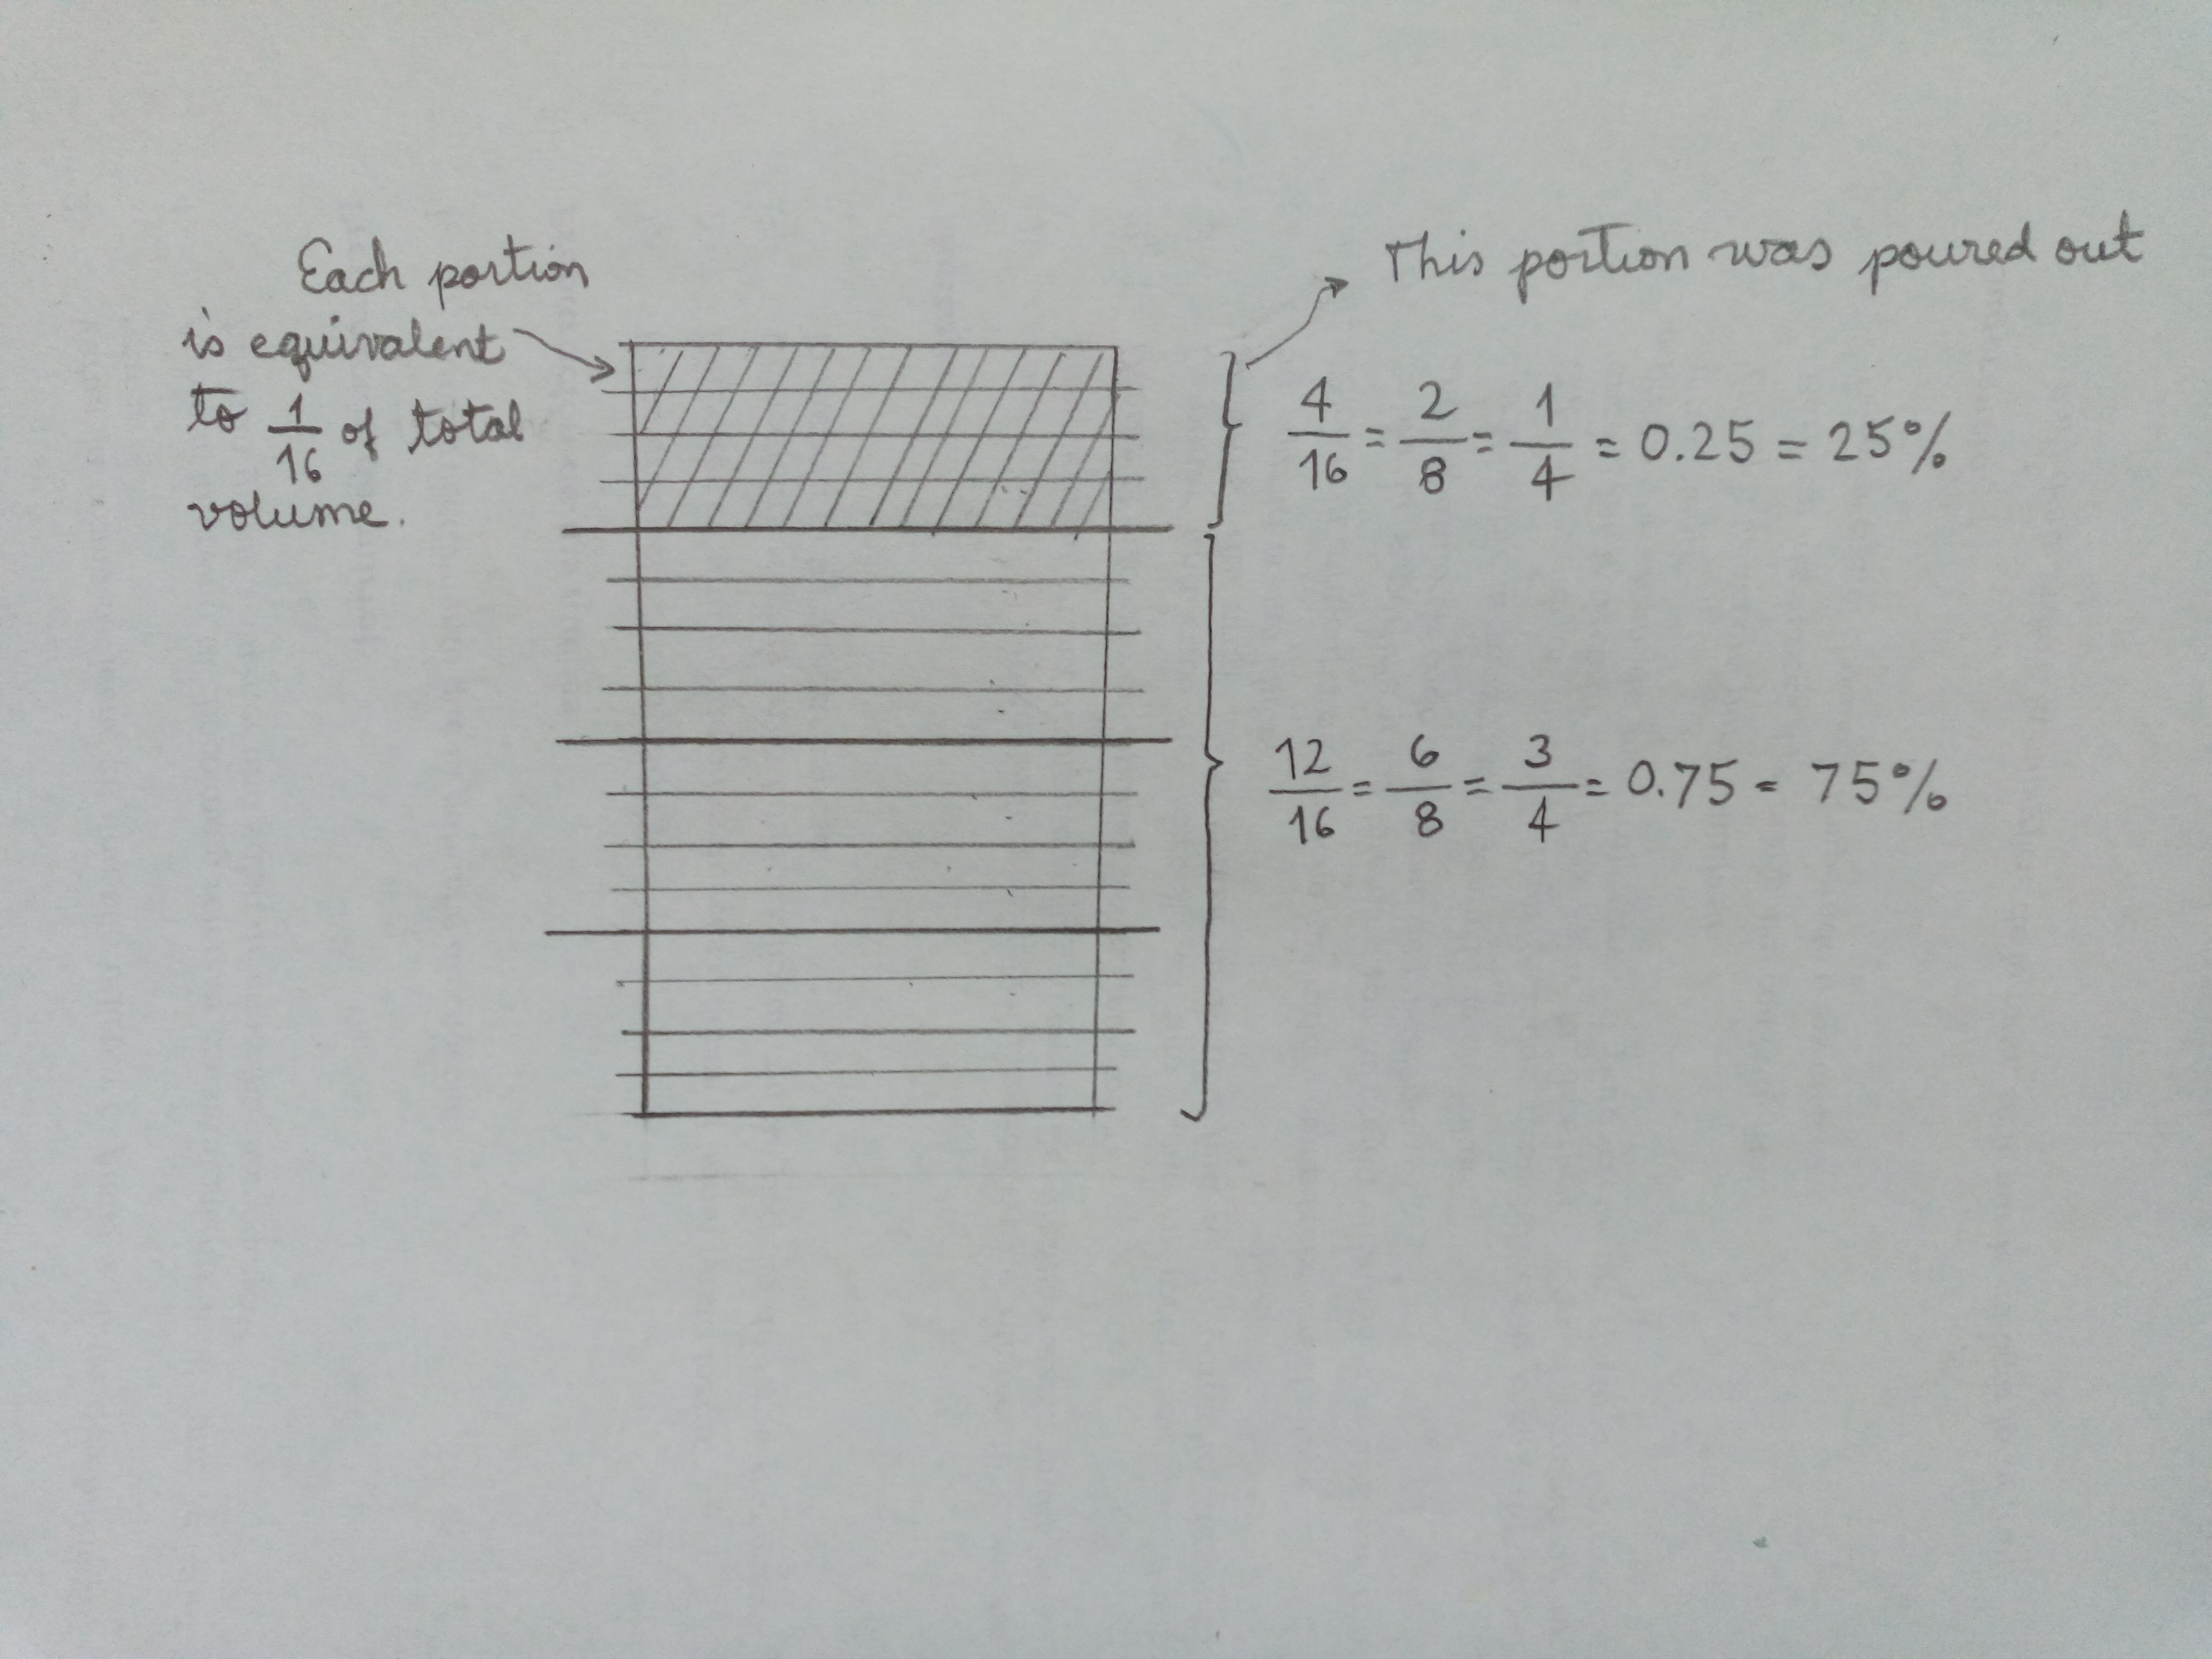 Each portion
is equivalent
to 1/16 of total
volume.
This portion was poured out
4/16 = 2/8 = 1/4 = 0.25 = 25%
12/16 = 6/8 = 3/4 = 0.75 = 75%